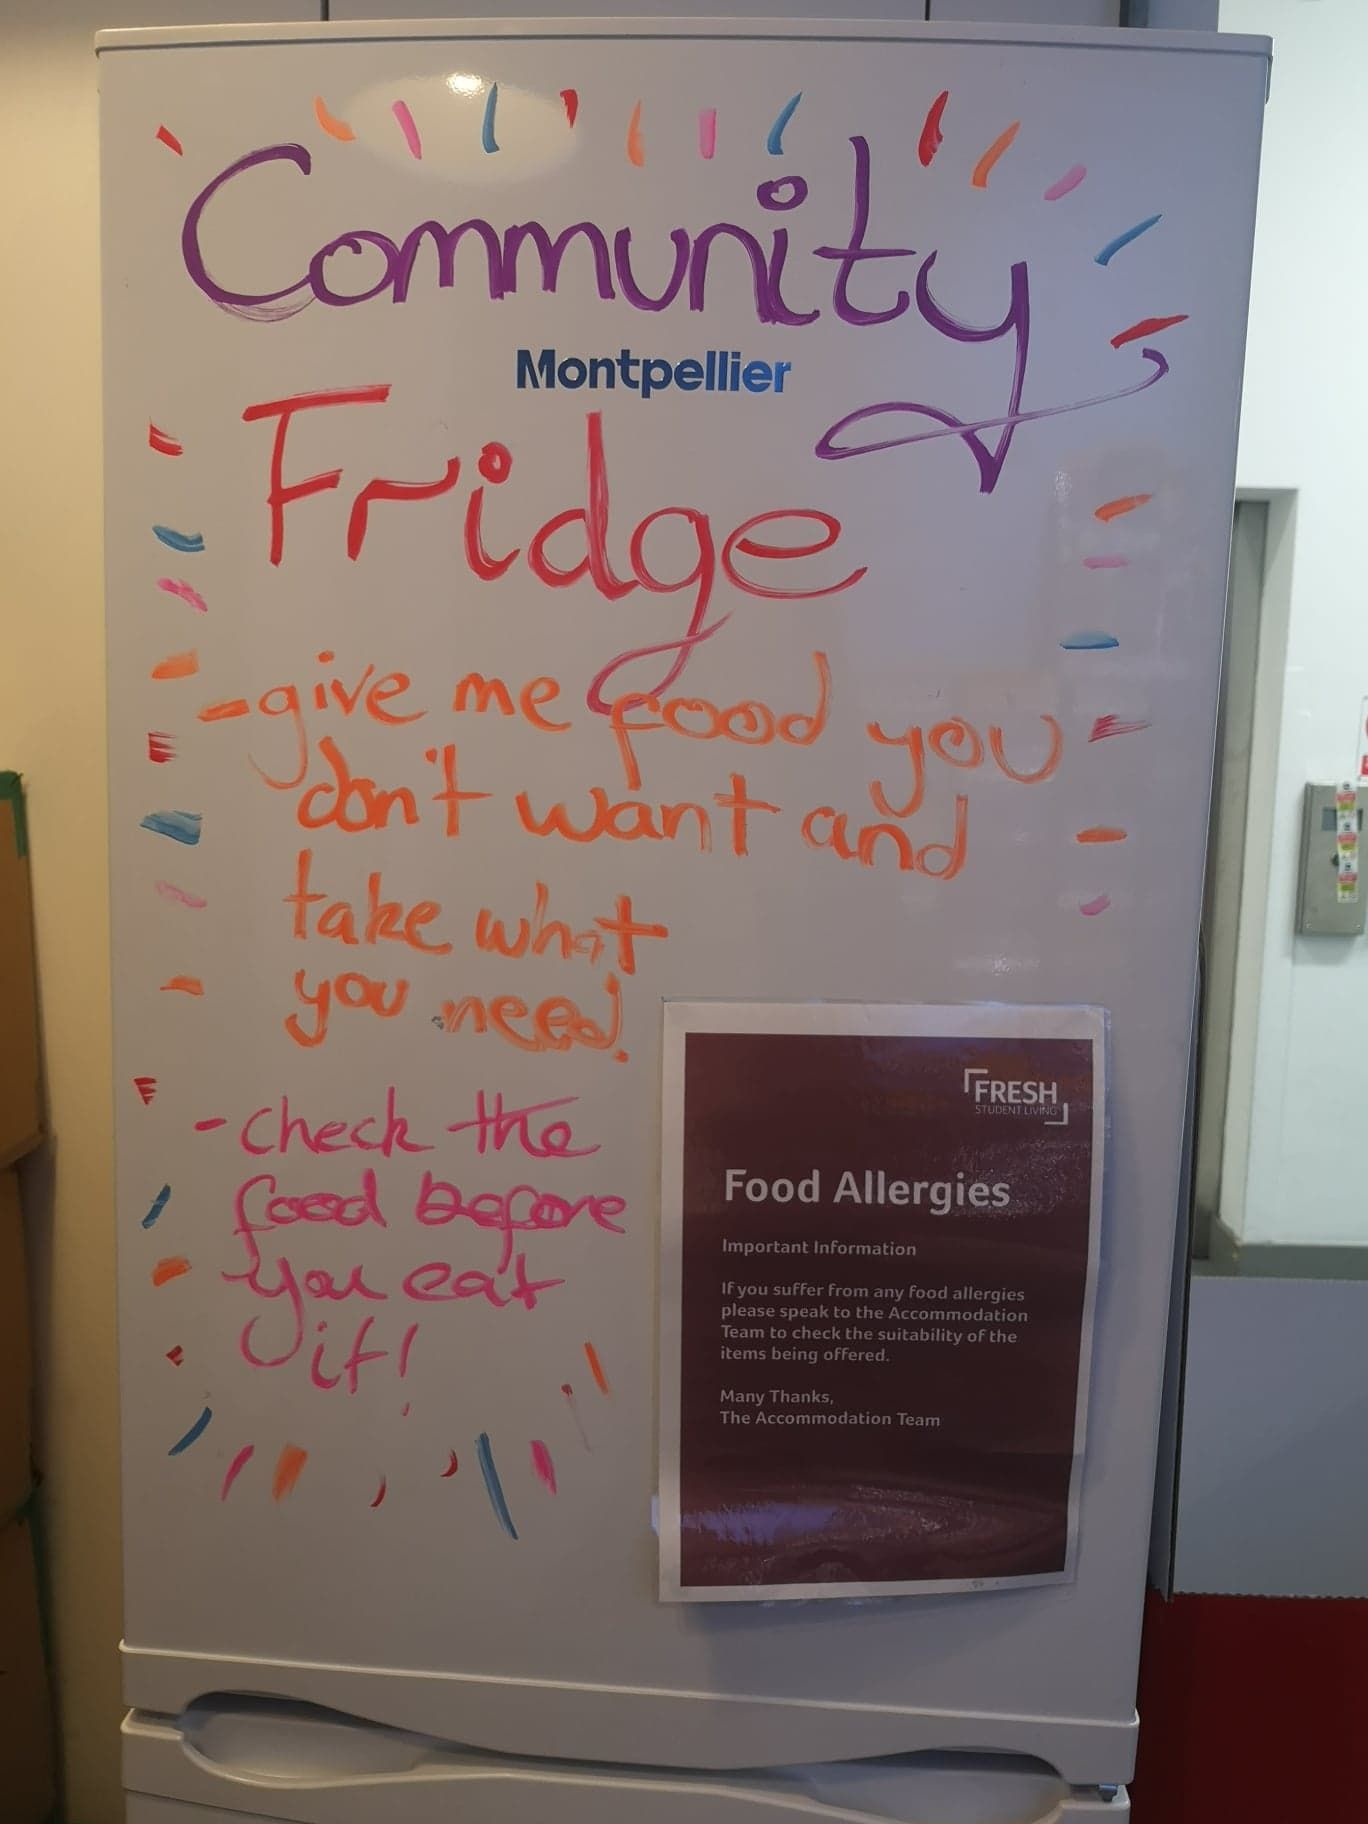 Community
Montpellier
Fridge
-give me food you
don't want and
take what
you need.
-check the
food before
you eat
it!
FRESH
STUDENT LIVING
Food Allergies
Important Information
If you suffer from any food allergies
please speak to the Accommodation
Team to check the suitability of the
items being offered.
Many Thanks,
The Accommodation Team